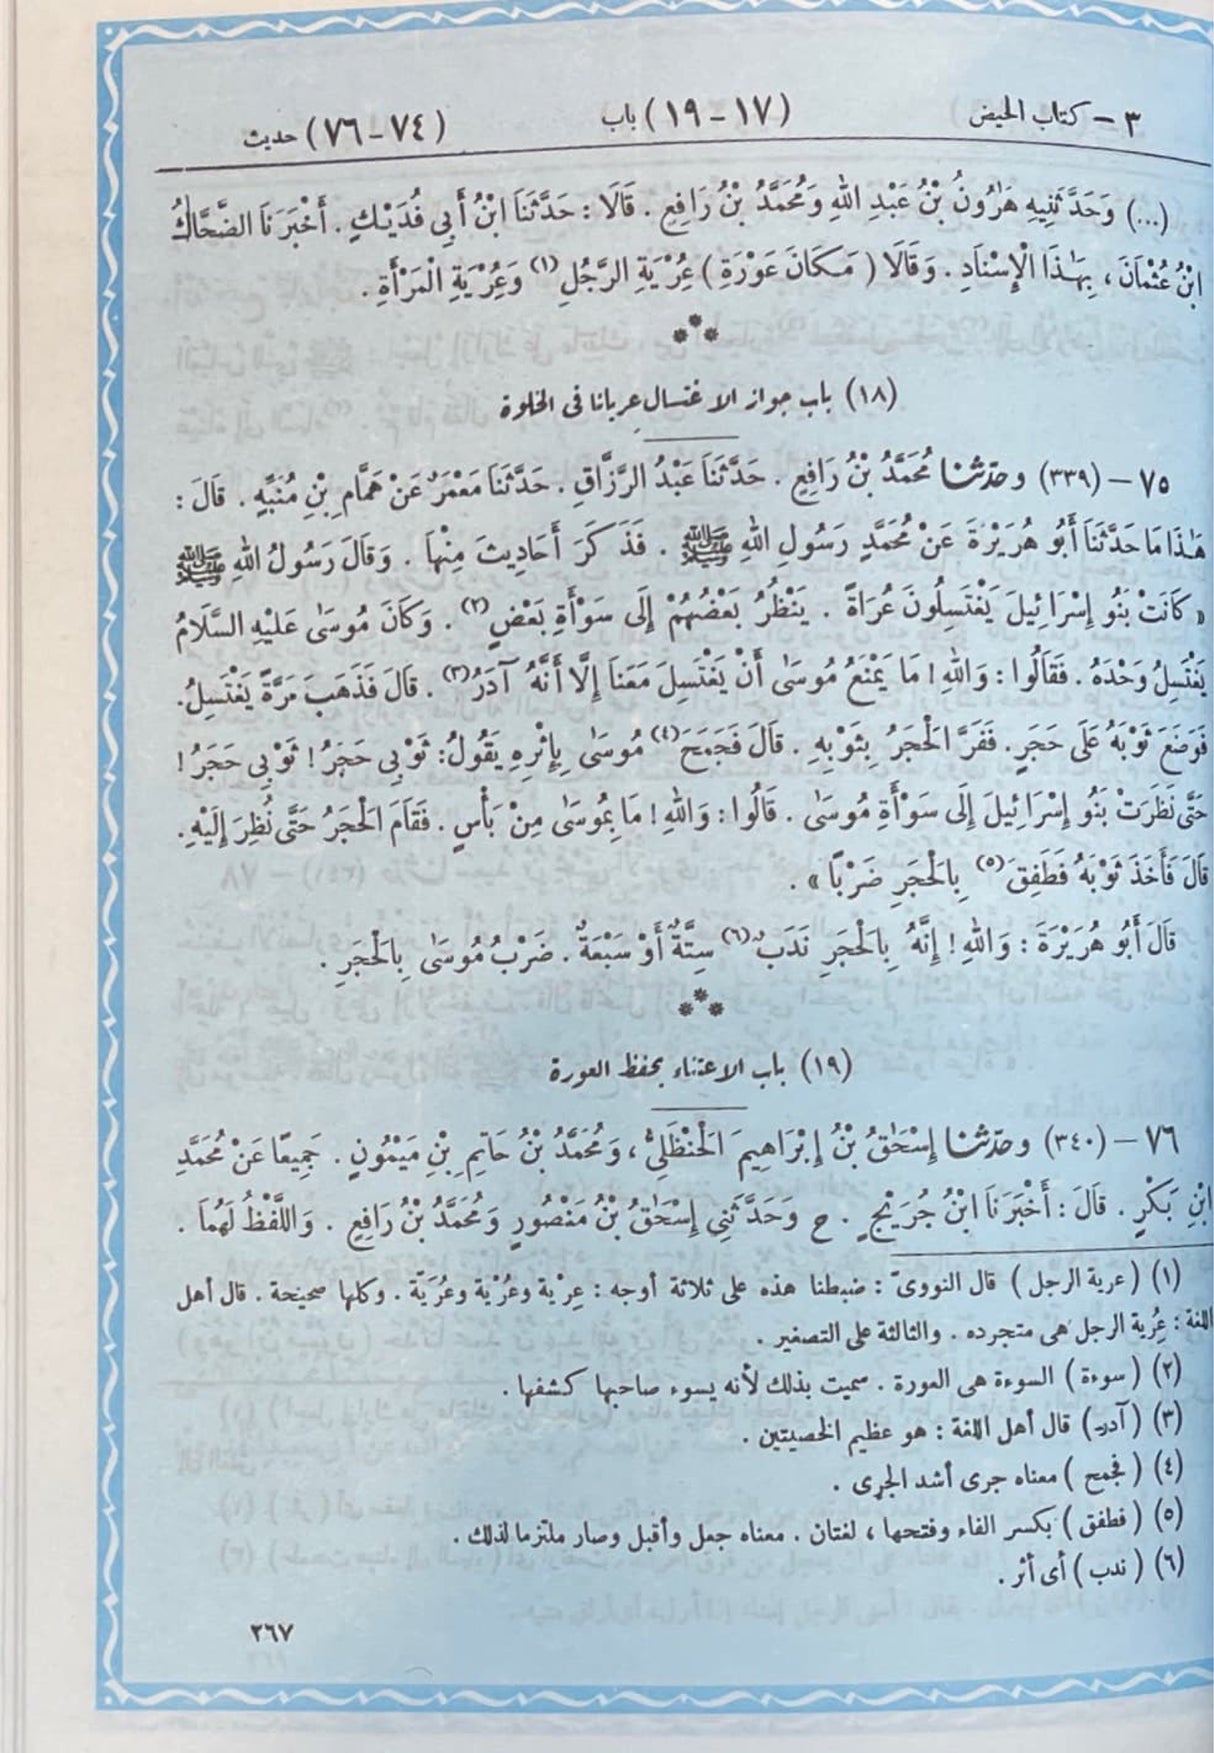 ٣ – كتاب الحيض (١٧ – ١٩) باب (٧٤ – ٧٦) حديث
(...) وَحَدَّثَنِيهِ هَٰرُونُ بْنُ عَبْدِ اللهِ وَمُحَمَّدُ بْنُ رَافِعٍ . قَالَا : حَدَّثَنَا ابْنُ أَبِي فُدَيْكٍ . أَخْبَرَنَا الضَّحَّاكُ
ابْنُ عُثْمَانَ ، بِهَٰذَا الْإِسْنَادِ . وَقَالَا ( مَكَانَ عَوْرَةِ ) عُرْيَةِ الرَّجُلِ (١) وَعُرْيَةِ الْمَرْأَةِ .
***
(١٨) باب جواز الاغتسال عريانا فى الخلوة
٧٥ – (٣٣٩) وحدّثنا مُحَمَّدُ بْنُ رَافِعٍ . حَدَّثَنَا عَبْدُ الرَّزَّاقِ . حَدَّثَنَا مَعْمَرٌ عَنْ هَمَّامِ بْنِ مُنَبِّهٍ . قَالَ :
هَٰذَا مَا حَدَّثَنَا أَبُو هُرَيْرَةَ عَنْ مُحَمَّدٍ رَسُولِ اللهِ ﷺ . فَذَكَرَ أَحَادِيثَ مِنْهَا . وَقَالَ رَسُولُ اللهِ ﷺ
« كَانَتْ بَنُو إِسْرَائِيلَ يَغْتَسِلُونَ عُرَاةً . يَنْظُرُ بَعْضُهُمْ إِلَى سَوْأَةِ بَعْضٍ (٢) . وَكَانَ مُوسَىٰ عَلَيْهِ السَّلَامُ
يَغْتَسِلُ وَحْدَهُ . فَقَالُوا : وَاللهِ ! مَا يَمْنَعُ مُوسَىٰ أَنْ يَغْتَسِلَ مَعَنَا إِلَّا أَنَّهُ آدَرُ (٣) . قَالَ فَذَهَبَ مَرَّةً يَغْتَسِلُ.
فَوَضَعَ ثَوْبَهُ عَلَى حَجَرٍ. فَفَرَّ الْحَجَرُ بِثَوْبِهِ . قَالَ فَجَمَحَ (٤) مُوسَىٰ بِإِثْرِهِ يَقُولُ: ثَوْبِي حَجَرُ! ثَوْبِي حَجَرُ!
حَتَّى نَظَرَتْ بَنُو إِسْرَائِيلَ إِلَى سَوْأَةِ مُوسَىٰ . قَالُوا : وَاللهِ ! مَا بِمُوسَىٰ مِنْ بَأْسٍ . فَقَامَ الْحَجَرُ حَتَّى نُظِرَ إِلَيْهِ.
قَالَ فَأَخَذَ ثَوْبَهُ فَطَفِقَ (٥) بِالْحَجَرِ ضَرْبًا » .
قَالَ أَبُو هُرَيْرَةَ : وَاللهِ ! إِنَّهُ بِالْحَجَرِ نَدَبٌ (٦) سِتَّةٌ أَوْ سَبْعَةٌ . ضَرْبُ مُوسَىٰ بِالْحَجَرِ .
***
(١٩) باب الاعتناء بحفظ العورة
٧٦ – (٣٤٠) وحدّثنا إِسْحَٰقُ بْنُ إِبْرَاهِيمَ الْحَنْظَلِيُّ ، وَمُحَمَّدُ بْنُ حَاتِمِ بْنِ مَيْمُونٍ . جَمِيعًا عَنْ مُحَمَّدِ
ابْنِ بَكْرٍ . قَالَ : أَخْبَرَنَا ابْنُ جُرَيْجٍ . ح وَحَدَّثَنِي إِسْحَٰقُ بْنُ مَنْصُورٍ وَمُحَمَّدُ بْنُ رَافِعٍ . وَاللَّفْظُ لَهُمَا .
(١) ( عرية الرجل ) قال النووىّ : ضبطنا هذه على ثلاثة أوجه : عِرْية وعُرْية وعُرَيّة . وكلها صحيحة . قال أهل
اللغة : عُرية الرجل هى متجرده . والثالثة على التصغير .
(٢) ( سوءة ) السوءة هى العورة . سميت بذلك لأنه يسوء صاحبها كشفها .
(٣) ( آدر ) قال أهل اللغة : هو عظيم الخصيتين .
(٤) ( فجمح ) معناه جرى أشد الجرى .
(٥) ( فطفق ) بكسر الفاء وفتحها ، لغتان . معناه جعل وأقبل وصار ملتزما لذلك .
(٦) ( ندب ) أى أثر .
٢٦٧